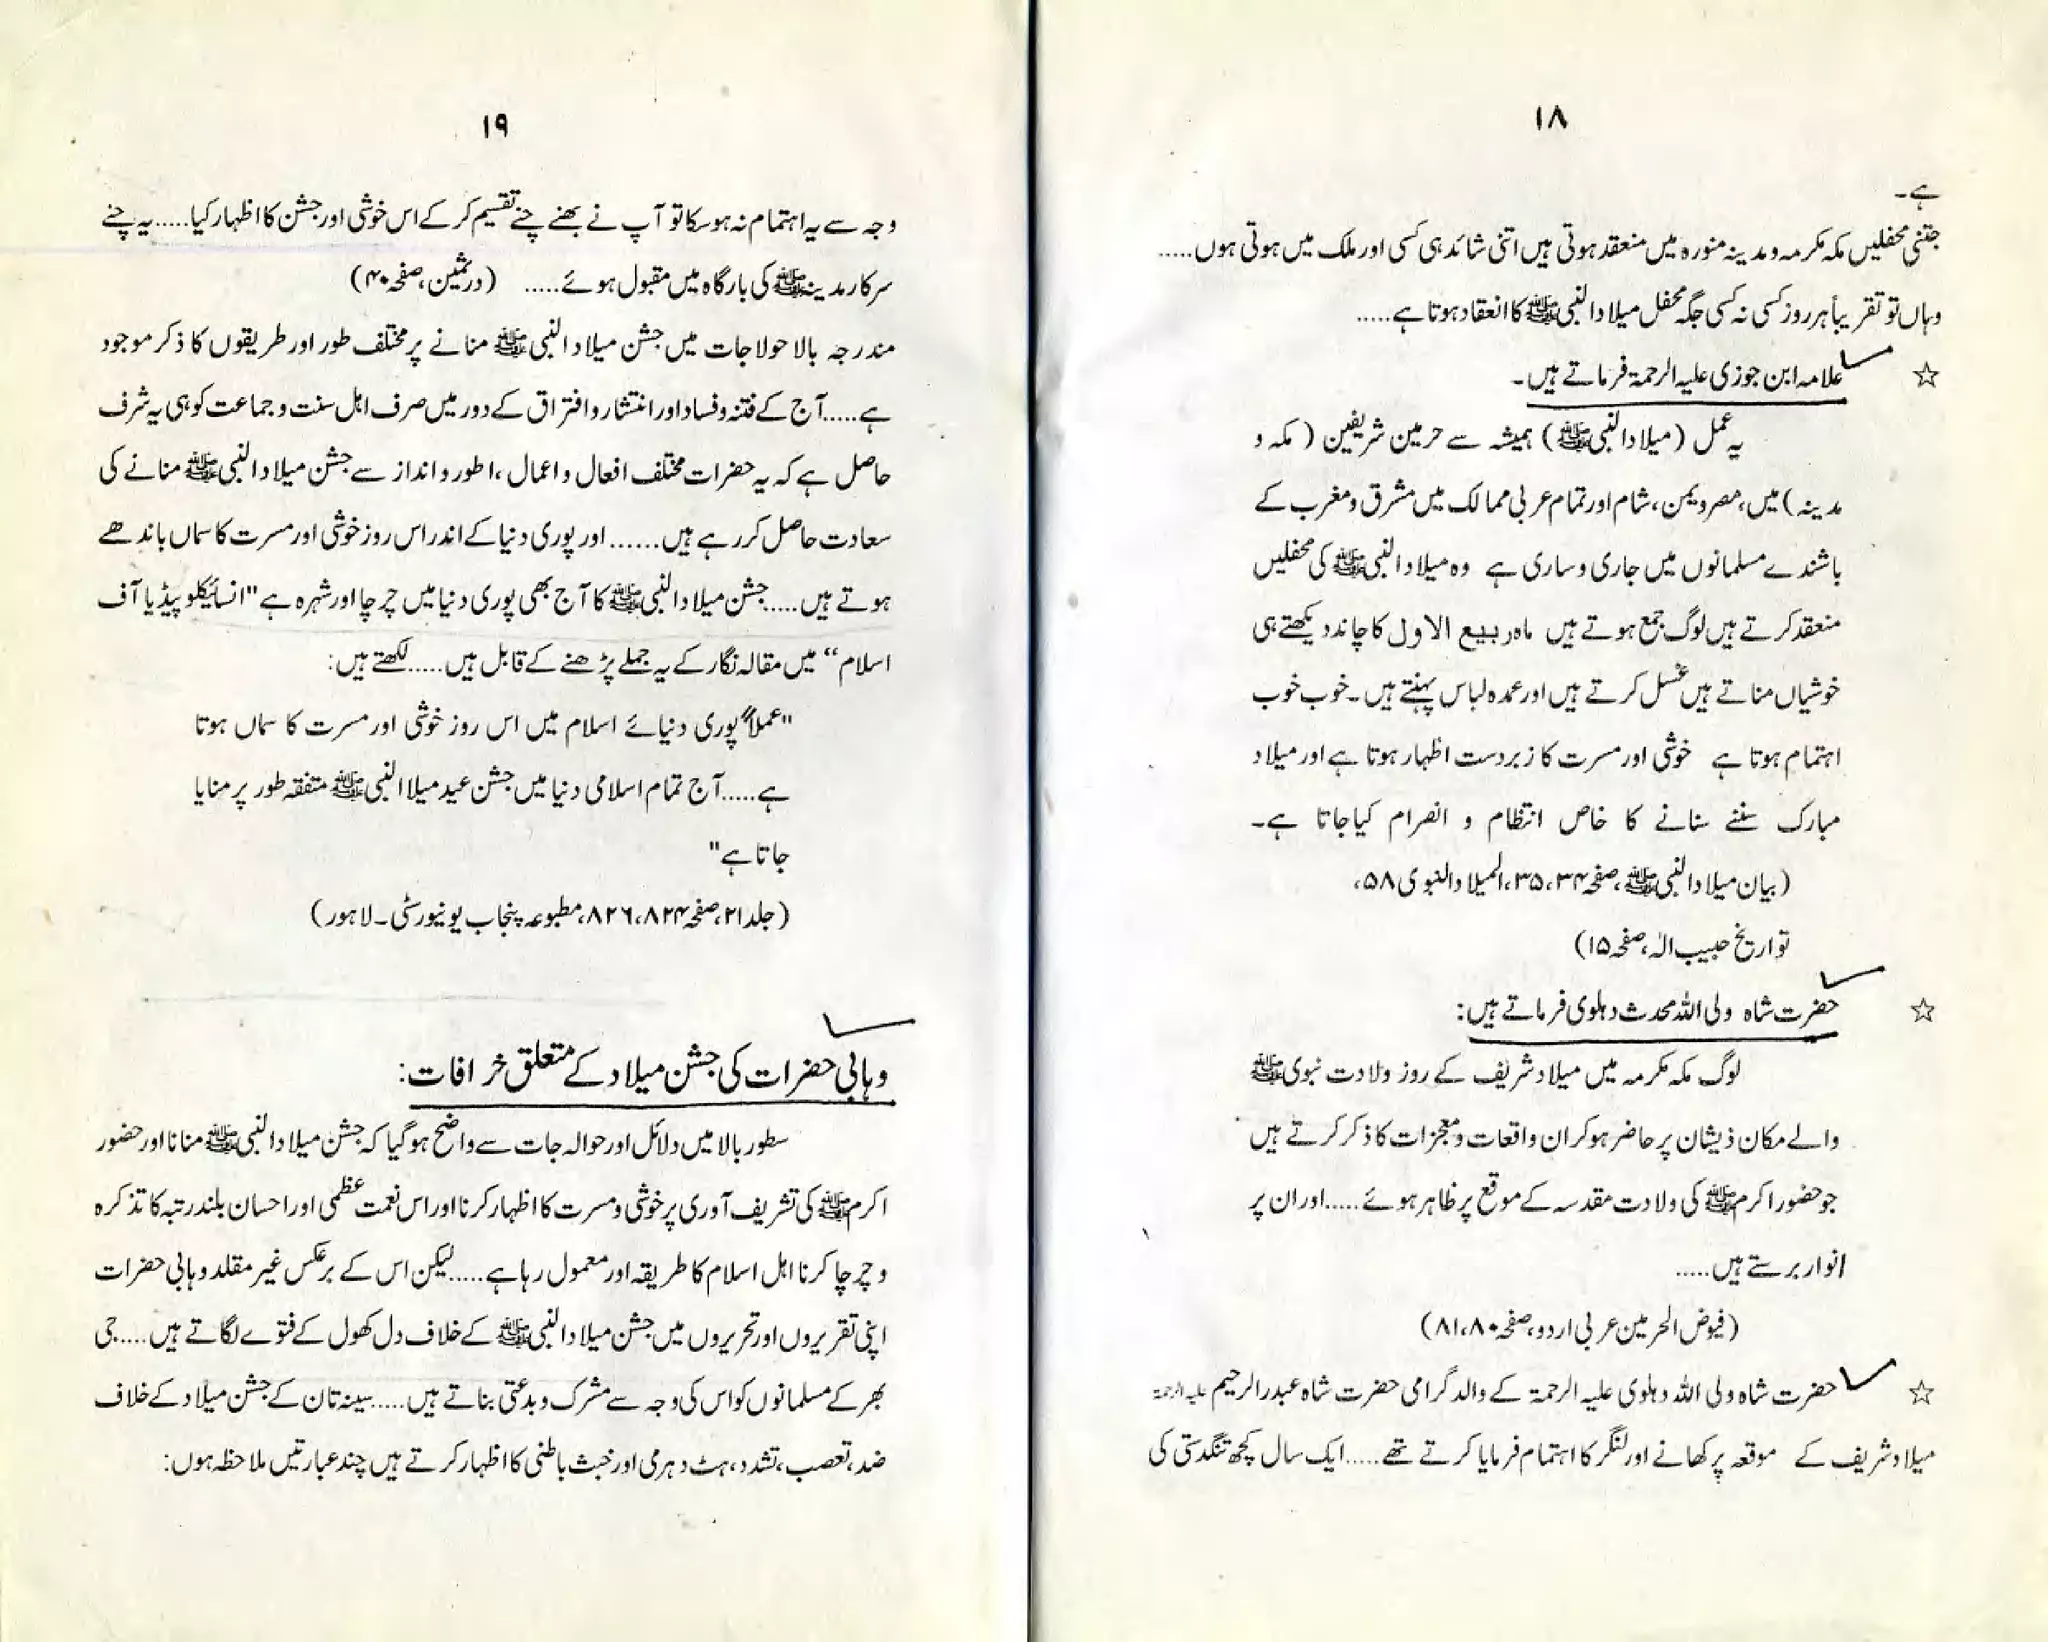 ۱۸
ہے۔
جتنی محفلیں مکہ مکرمہ و مدینہ منورہ میں منعقد ہوتی ہیں اتنی شائد ہی کسی اور ملک میں ہوتی ہوں.....
وہاں تو تقریباً ہر روز کسی نہ کسی جگہ محفل میلاد النبی ﷺ کا انعقاد ہوتا ہے.....
☆ علامہ ابن جوزی علیہ الرحمۃ فرماتے ہیں۔
یہ عمل (میلاد النبی ﷺ) ہمیشہ سے حرمین شریفین (مکہ و
مدینہ) میں، مصر و یمن، شام اور تمام عربی ممالک میں مشرق و مغرب کے
باشندے مسلمانوں میں جاری و ساری ہے وہ میلاد النبی ﷺ کی محفلیں
منعقد کرتے ہیں لوگ جمع ہوتے ہیں ماہ ربیع الاول کا چاند دیکھتے ہی
خوشیاں مناتے ہیں غسل کرتے ہیں اور عمدہ لباس پہنتے ہیں۔ خوب خوب
اہتمام ہوتا ہے خوشی اور مسرت کا زبردست اظہار ہوتا ہے اور میلاد
مبارک سننے سنانے کا خاص انتظام و انصرام کیا جاتا ہے۔
(بیان میلاد النبی ﷺ، صفحہ ۳۴، ۳۵، المیلاد النبوی ۵۸،
تواریخ حبیب الہٰ، صفحہ ۱۵)
☆ حضرت شاہ ولی اللہ محدث دہلوی فرماتے ہیں:
لوگ مکہ مکرمہ میں میلاد شریف کے روز ولادت نبوی ﷺ
والے مکان ذیشان پر حاضر ہو کر ان واقعات و معجزات کا ذکر کرتے ہیں
جو حضور اکرم ﷺ کی ولادت مقدسہ کے موقع پر ظاہر ہوئے.....اور ان پر
انوار برستے ہیں.....
(فیوض الحرمین عربی اردو، صفحہ ۸۰، ۸۱)
☆ حضرت شاہ ولی اللہ دہلوی علیہ الرحمۃ کے والد گرامی حضرت شاہ عبدالرحیم علیہ الرحمۃ
میلاد شریف کے موقعہ پر کھانے اور لنگر کا اہتمام فرمایا کرتے تھے.....ایک سال کچھ تنگدستی کی
۱۹
وجہ سے یہ اہتمام نہ ہو سکا تو آپ نے بھنے چنے تقسیم کر کے اس خوشی اور جشن کا اظہار کیا.....یہ چنے
سرکار مدینہ ﷺ کی بارگاہ میں مقبول ہوئے..... (درثمین، صفحہ ۴۰)
مندرجہ بالا حولاجات میں جشن میلاد النبی ﷺ منانے پر مختلف طور اور طریقوں کا ذکر موجود
ہے.....آج کے فتنہ و فساد اور انتشار و افتراق کے دور میں صرف اہل سنت و جماعت کو ہی یہ شرف
حاصل ہے کہ یہ حضرات مختلف افعال و اعمال، اطور و انداز سے جشن میلاد النبی ﷺ منانے کی
سعادت حاصل کر رہے ہیں......اور پوری دنیا کے اندر اس روز خوشی اور مسرت کا سماں باندھے
ہوتے ہیں.....جشن میلاد النبی ﷺ کا آج بھی پوری دنیا میں چرچا اور شہرہ ہے "انسائیکلوپیڈیا آف
اسلام“ میں مقالہ نگار کے یہ جملے پڑھنے کے قابل ہیں.....لکھتے ہیں:
"عملاً پوری دنیائے اسلام میں اس روز خوشی اور مسرت کا سماں ہوتا
ہے.....آج تمام اسلامی دنیا میں جشن عید میلا النبی ﷺ متفقہ طور پر منایا
جاتا ہے"
(جلد ۲۱، صفحہ ۸۲۴، ۸۲۶، مطبوعہ پنجاب یونیورسٹی۔ لاہور)
وہابی حضرات کی جشن میلاد کے متعلق خرافات:
سطور بالا میں دلائل اور حوالہ جات سے واضح ہو گیا کہ جشن میلاد النبی ﷺ منانا اور حضور
اکرم ﷺ کی تشریف آوری پر خوشی و مسرت کا اظہار کرنا اور اس نعمت عظمی اور احسان بلند رتبہ کا تذکرہ
و چرچا کرنا اہل اسلام کا طریقہ اور معمول رہا ہے.....لیکن اس کے برعکس غیر مقلد وہابی حضرات
اپنی تقریروں اور تحریروں میں جشن میلاد النبی ﷺ کے خلاف دل کھول کے فتوے لگاتے ہیں.....جی
بھر کے مسلمانوں کو اس کی وجہ سے مشرک و بدعتی بناتے ہیں.....سینہ تان کے جشن میلاد کے خلاف
ضد، تعصب، تشدد، ہٹ دہری اور خبث باطنی کا اظہار کرتے ہیں چند عبارتیں ملاحظہ ہوں: